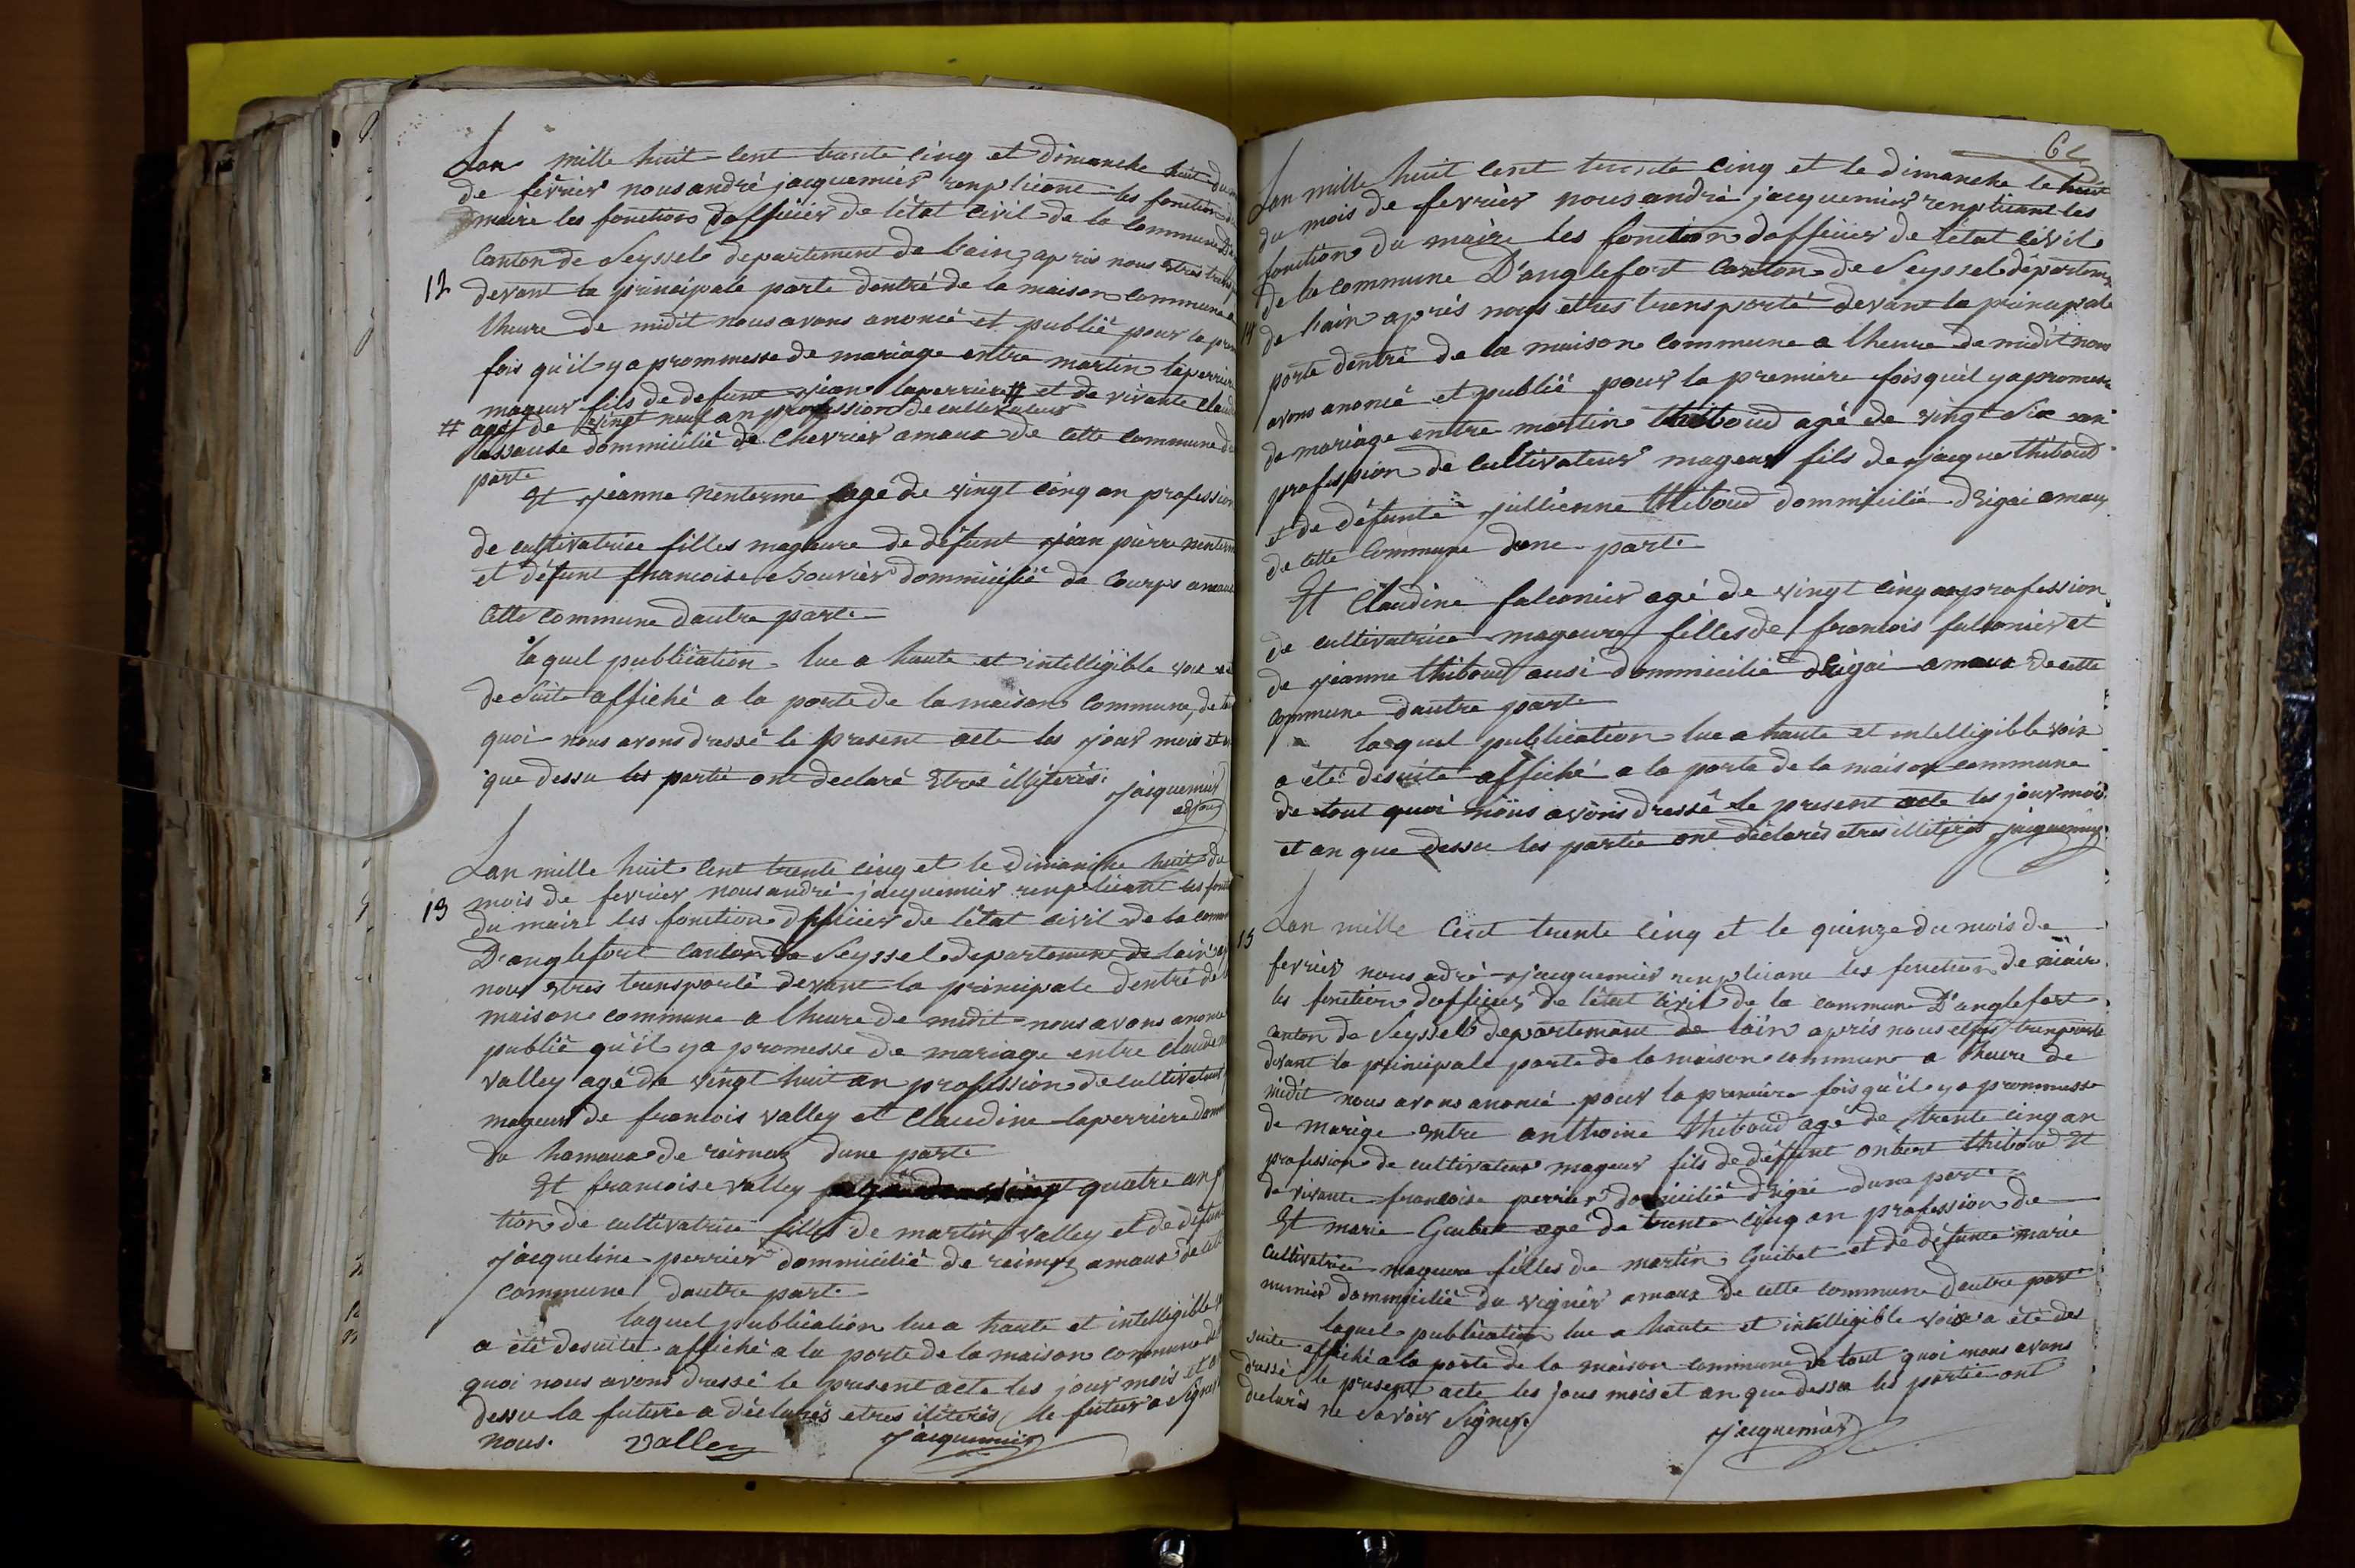 Lan mille huit cent trente cinq et dimanche huit du
de février nous andré jacquemier remplicant les fonction
maire les fonctions dofficier de létat civil de la commune
Canton de Seyssel departement de lain apris nous etres
12
devant la principale porte dentré de la maison commune a
lheure de midit nous avons anoncé et publié pour la prem
fois quil y a prommesse de mariage entre martin laperrier
mageur fils de defunt jean laperrier # et de vivante Claud
# agé de vingt neuf an profession de cultivateur
dommicilié de Chevrier amaux de cette commune du
parte
Et jeanne agé de vingt cinq an profession
de cultivatrice filles mageure de défunt jean pierre
et défunt francoise Bouvier dommicilié de Courps amaux
cette commune dautre parte
laquel publication lue a haute et intelligible voix
desuite affiché a la porte de la maison commune, de
quoi nous avons dressé le present acte les jour mois et
que dessu les partié ont declaré etres illiterés. jacquemier
adjoin
Lan mille huit cent trente cinq et le dimanche huit du
mois de fevrier nous andré jacquemier remplicant les fonct
13
du maire les fonction dofficier de létat civil de la comm
D'anglefort canton de Seyssel departement de lain
nous etres transporté devant la principale dentré de
maison commune a lheure de midit nous avons anonc
publié quil y a promesse de mariage entre claude
valley agé de vingt huit an profession de cultivateur
mageur de francois valley et Claudine laperriere dom
du hamaux de raimaz dune parte
Et francoise valley quatre an p
tion de cultivatrice filles de martin valley et de défunt
jacqueline perrier dommicilié de raimaz amaux de cett
commune dautre parte
laquel publication lue a haute et intelligible
a été desuite affiché a la porte de la maison commune de
quoi nous avons dressé le present acte les jour mois et
dessu la future a déclarés etres iliterés le futur a Signé
nous. Valley jacquemier
62
Lan mille huit cent trente cinq et le dimanche le huit
du mois de fevrier nous andré jacquemier remplicant les
fonction du maire les fonction dofficier de létat civil
de la commune D'anglefort canton de Seyssel départem
14
de lain aprés nous etres transporté devant la principale
porte dentré de la maison commune a lheure de midit nous
avons anoncé et publié pour la premiere fois quil y a promess
de mariage entre martin thiboud agé de vingt Six an
profession de cultivateur mageur fils de jacque thiboud
et de défunte jullienne thiboud dommicilié dEigai amaux
de cette commune dune parte
Et Claudine falconier agé de vingt cinq an profession
de cultivatrice mageure filles de francois falconier et
de jeanne thiboud ausi dommicilié dEigai amaux de cette
commune dautre parte
laquel publication lue a haute et intelligible voix
a été desuite affiché a la porte de la maison commune
de tout quoi nous avons dressé le present acte les jour mois
et an que dessu les partié ont déclarés etres illiterés jacquemier
15
Lan mille Cent trente cinq et le quinze du mois de
fevrier nous adré jacquemier remplicant les fonction de maire
les fonction dofficier de létat civil de la commune D'anglefort
canton de Seyssel departement de lain aprés nous etres transporté
devant la principale porte de la maison commune a lheure de
midit nous avons anoncé pour la premiere fois quil y a prommesse
de mariage entre anthoine thiboud agé de trente cinq an
profession de cultivateur mageur fils de défunt thiboud et
de vivante francoise perrier domicilié dEigai dune parte
Et marie Guibet agé de trente cinq an profession de
cultivatrice mageure filles de martin Guibet et de défunte marie
mumier dommicilié du vignér amaux de cette commune dautre part
laquel publication lue a haute et intelligible voix a été des
suite affiché a la porte de la maison commune de tout quoi nous avons
dressé le present acte les jour mois et an que dessu les partié ont
declarés ne Savoir Signer.
jacquemier